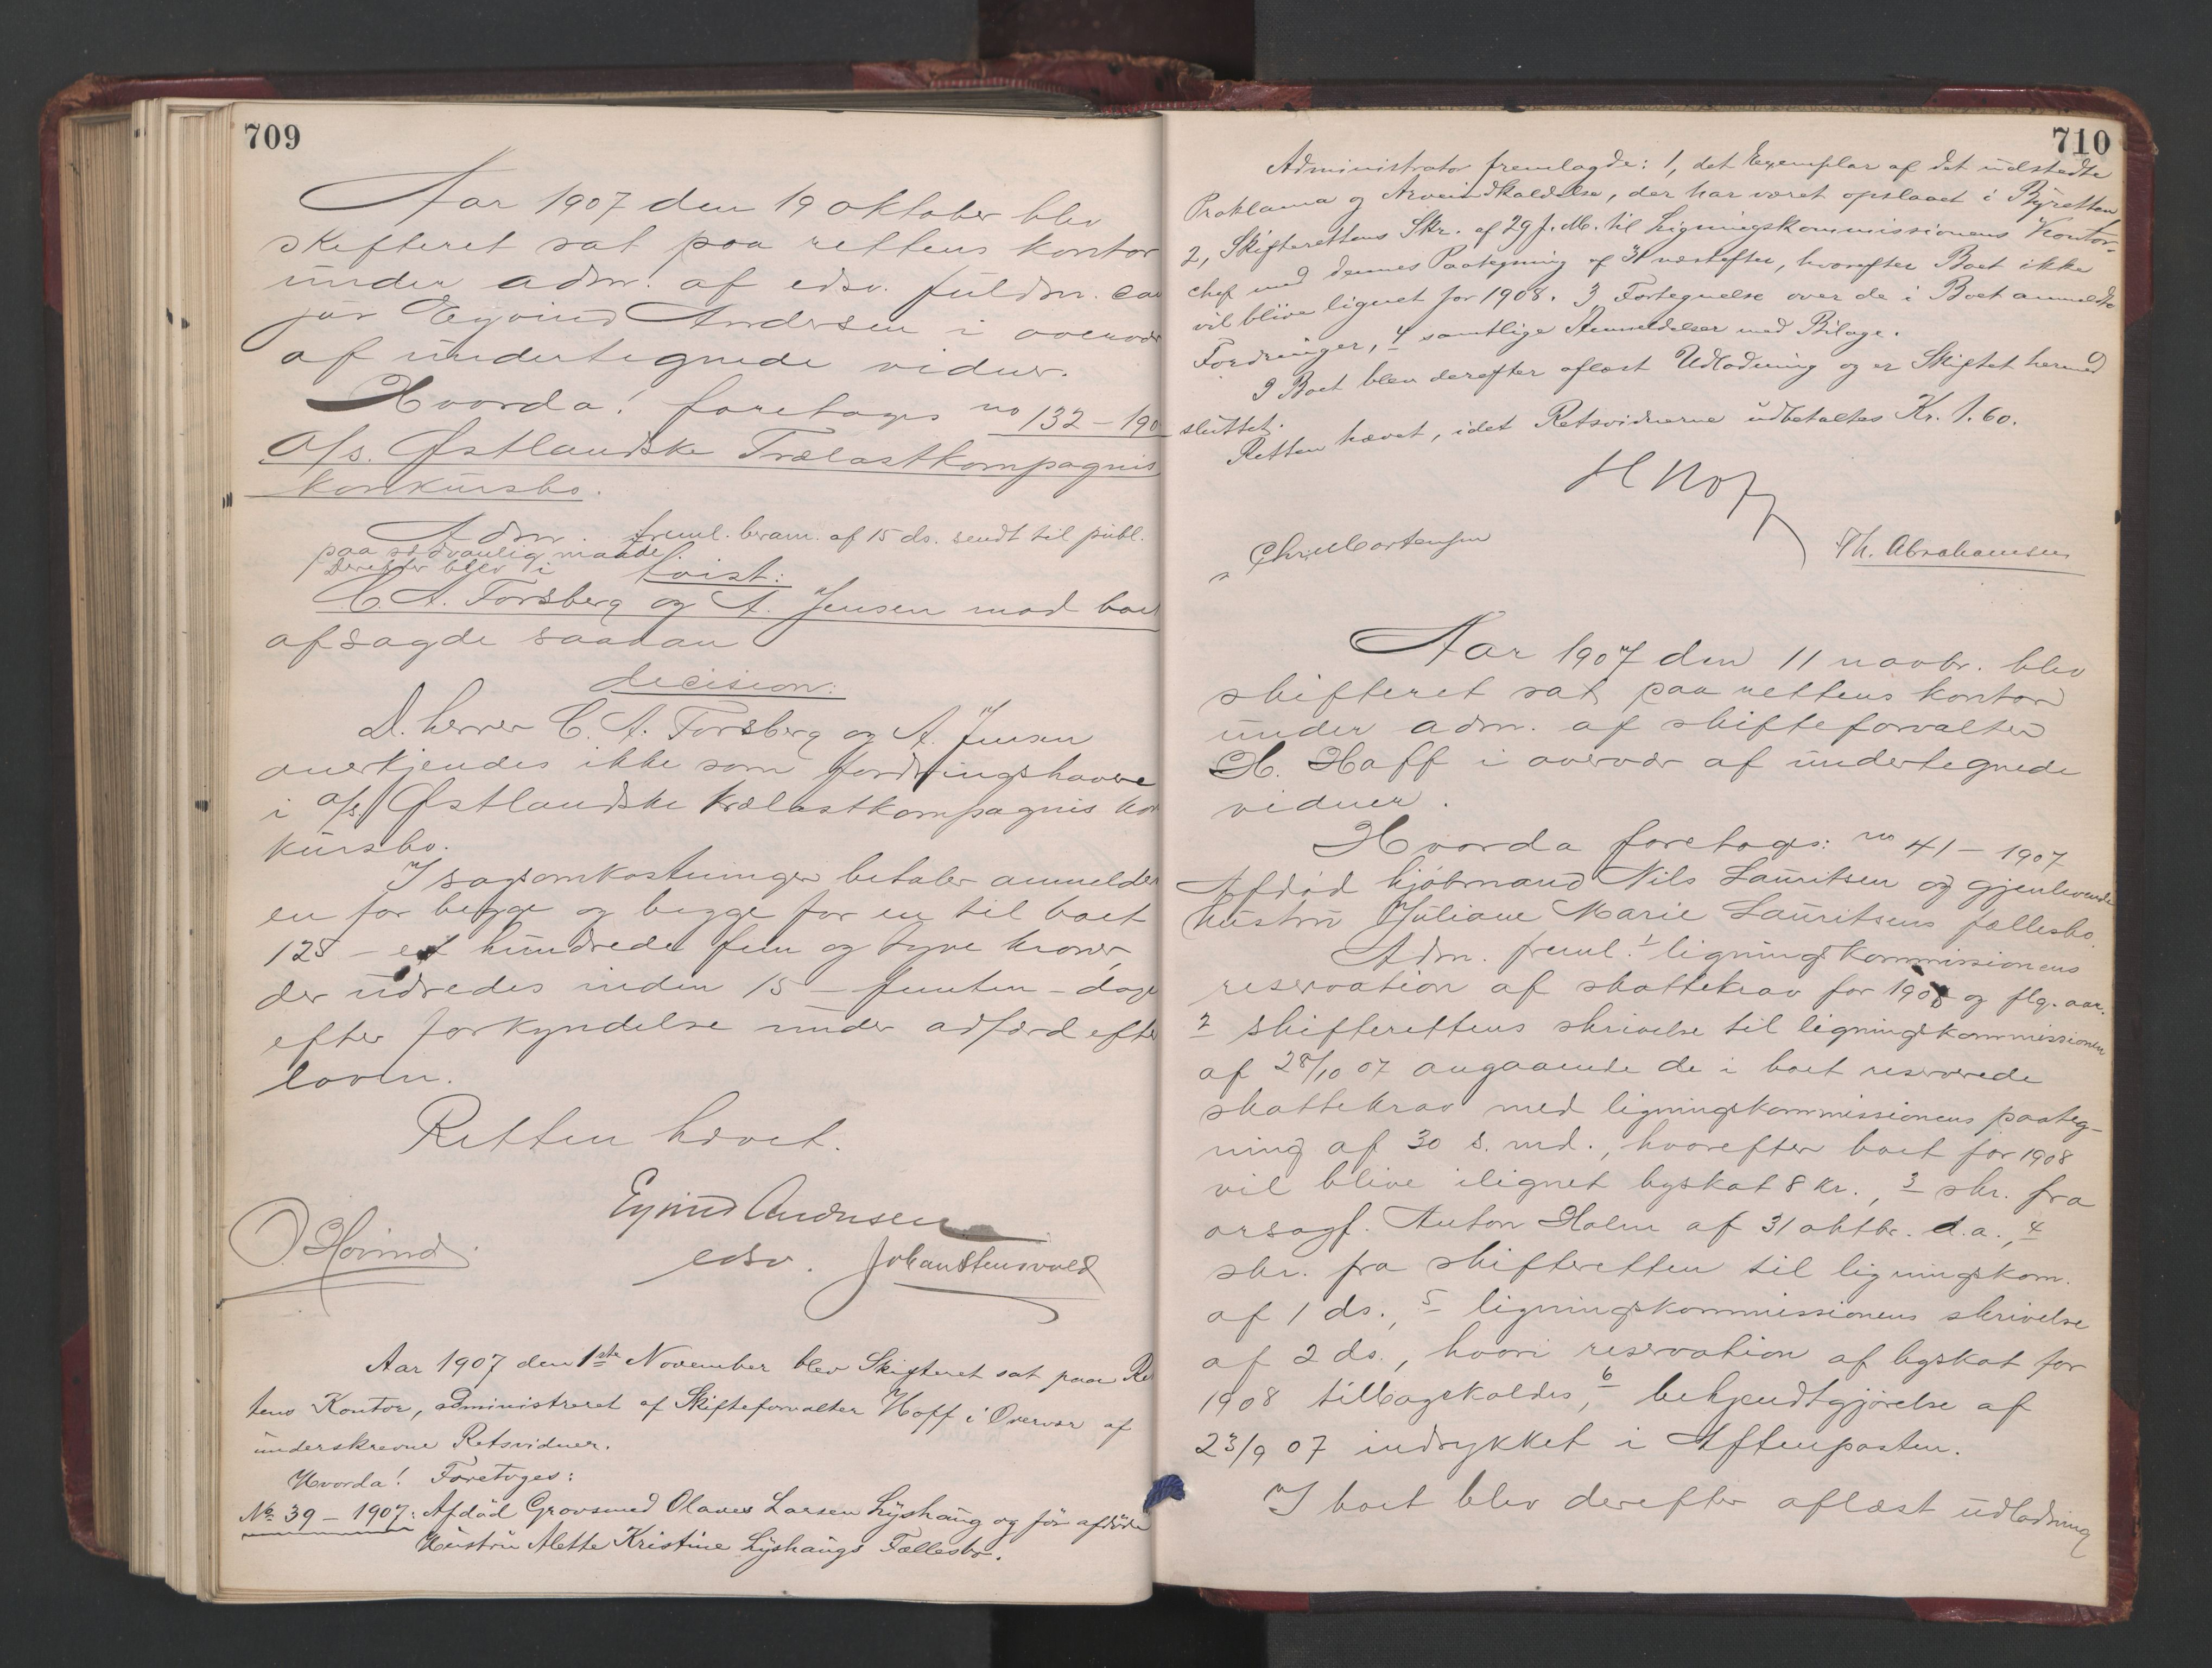 709
Aar 1907 den 19 oktober blev
skifteret sat paa rettens kontor
under adm. af edsv. fuldm. cand
jur Eyvind Andersen i overvær
af undertegnede vidner.
Hvorda! foretoges no 132 – 190
A/s. Østlandske Trælastkompagnis
konkursbo.
Adm. freml. beram. af 15 ds. sendt til publ.
paa sedvanlig maade.
Derefter blev i tvist:
C. A. Forsberg og A. Jensen mod boet
afsagde saadan
decision:
D. herrer C. A. Forsberg og A. Jensen
anerkjendes ikke som fordringshavere
i a/s. Østlandske trælastkompagnis kon
kursbo.
I sagsomkostninger betaler anmelder
en for begge og begge for en til boet
125 – et hundrede fem og tyve kroner,
der udredes inden 15 – femten – dage
efter forkyndelse under adfærd efter
loven.
Retten hævet.
Eyvind Andersen
edsv.
O. Hovind
Johan Stensvold
Aar 1907 den 1ste November blev Skifteret sat paa Ret
tens Kontor, administreret af Skifteforvalter Hoff i Overvær af
underskrevne Retsvidner.
Hvorda! Foretoges:
No 39 – 1907: Afdød Grovsmed Olaves Larsen Lyshaug og før afdøde
Hustru Alette Kristine Lyshaugs Fællesbo.
710
Administrator fremlagde: 1, det Exemplar af det udstedte
Proklama og Arveindkaldelse, der har været opslaaet i Byretten,
2, Skifterettens Skr. af 29 f. M. til Ligningskommissionens Kontor-
chef med dennes Paategning af 31 næstefter, hvorefter Boet ikke
vil blive lignet for 1908. 3 Fortegnelse over de i Boet anmeldte
Fordringer, 4 samtlige Anmeldelser med Bilage.
I Boet blev derefter aflæst Udlodning og er Skiftet hermed
sluttet.
Retten hævet, idet Retsvidnerne udbetaltes Kr. 1.60.
H Hoff
Chr. Mortensen
Th. Abrahamsen
Aar 1907 den 11 novbr. blev
skifteret sat paa rettens kontor
under adm. af skifteforvalter
H. Hoff i overvær af undertegnede
vidner.
Hvorda foretoges: no 41 – 1907
Afdød kjøbmand Nils Lauritsen og gjenlevende
hustru Juliane Marie Lauritsens fællesbo.
Adm. freml. 1 ligningskommissionens
reservation af skattekrav for 1908 og flg. aar.
2 skifterettens skrivelse til ligningskommissionen
af 28/10 07 angaaende de i boet reserverede
skattekrav med ligningskommissionens paateg-
ning af 30 s. md., hvorefter boet for 1908
vil blive ilignet byskat 8 kr., 3 skr. fra
orsagf. Anton Holm af 31 oktbr. d.a., 4
skr. fra skifteretten til ligningskom.
af 1 ds., 5 ligningskommissionens skrivelse
af 2 ds., hvori reservation af byskat for
1908 tilbagekaldes, 6 bekjendtgjørelse af
23/9 07 indrykket i Aftenposten.
I boet blev derefter aflæst udlodning